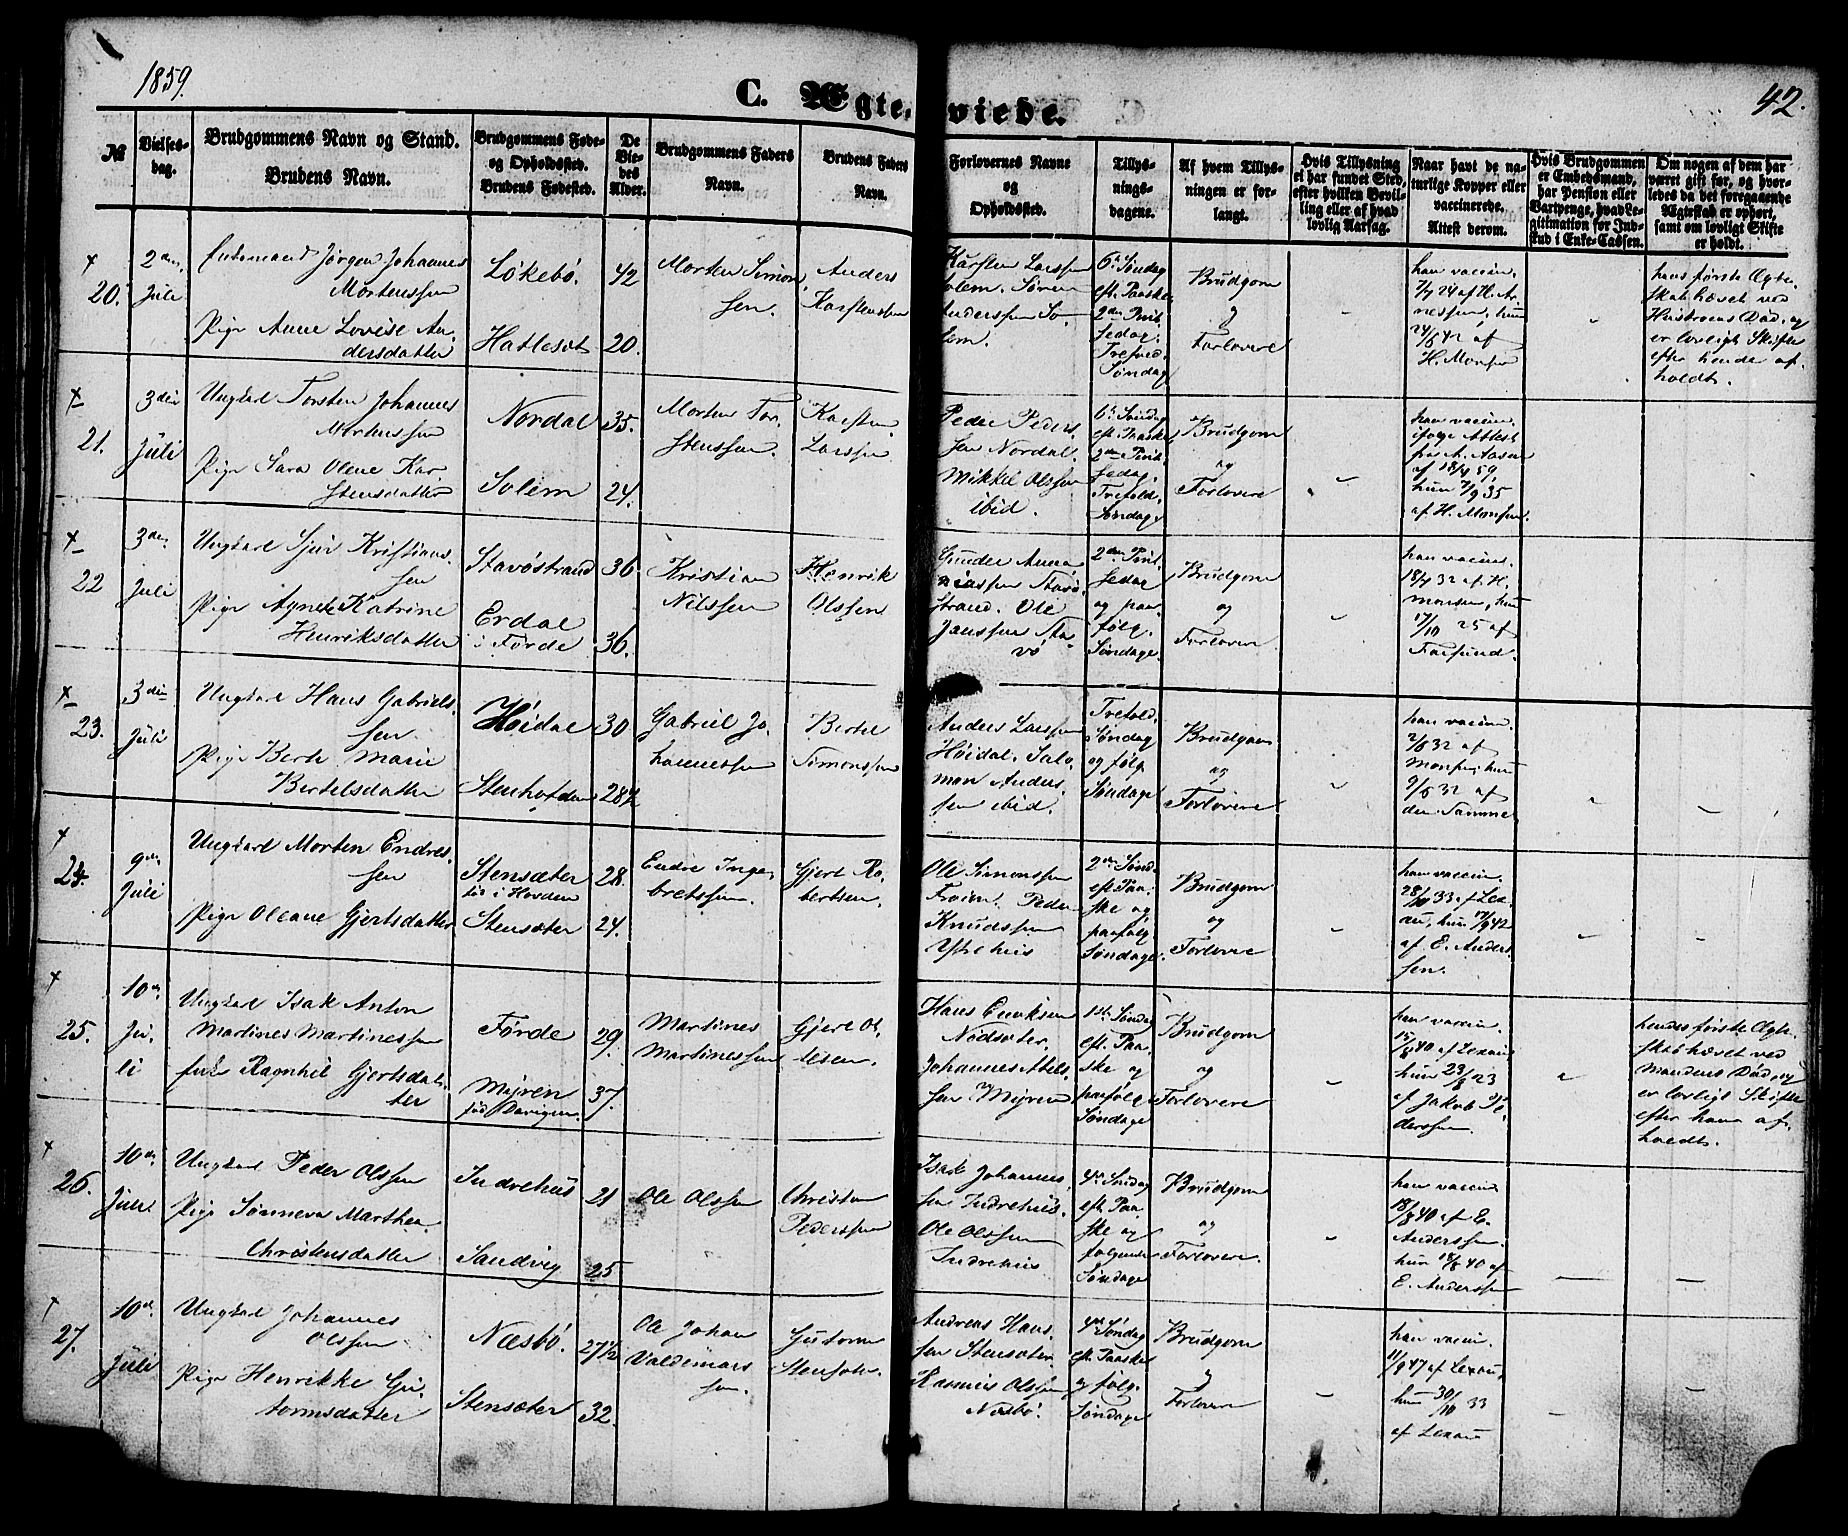 1859.
C. Ægteviede.
42.
№
Vielsesdag.
Brudgommens Navn og Stand.
Brudens Navn.
Brudgommens Føde- og Opholdssted.
Brudens Fødested.
De Viedes Alder.
Brudgommens Faders Navn.
Brudens Faders Navn.
Forlovernes Navne og Opholdssted.
Tillysningsdagene.
Af hvem Tillysningen er forlangt.
Hvis Tillysning ei har fundet Sted, efter hvilken Bevilling eller af hvad lovlig Aarsag.
Naar havt de naturlige Kopper eller vaccinerede. Attest derom.
Hvis Brudgommen er Embedsmand, har Pension eller Vartpenge, hvad Legitimation for Indskud i Enke-Cassen.
Om nogen af dem har været gift før, og hvorledes da det foregaaende Ægteskab er ophørt, samt om lovligt Skifte er holdt.
20.
2den Juli
Enkemand Jørgen Johannes
Mortenssen
Pige Anne Lovise An-
dersdatter
Løkebø
Hatleset
42
20.
Morten Simon-
sen.
Anders
Karstenssen
Karsten Larssen
Solem. Søren
Anderssen So-
lem.
6te Søndag
eft. Paaske
2den Pint-
sedag.
Trefold.
Søndag
Brudgom
og
Forlovere
han vaccin.
7/7 24 af H. Ar-
nessen, hun
24/6 42 af
H. Monsen
hans første Ægte-
skab hævet ved
Hustruens Død, og
er lovligt Skifte
efter hende af-
holdt.
21.
3die Juli
Ungkarl Torsten Johannes
Mortenssen
Pige Sara Oline Kar-
stensdatter
Nordal
Solem
35.
24.
Morten Tor-
stenssen.
Karsten
Larssen
Peder Peders-
sen Nordal.
Mikkel Olssen
ibid.
6te Søndag
eft. Paaske,
2den Pint-
sedag,
Trefold.
Søndag
Brudgom
og
Forlovere
han vaccin.
ifølge Attest
fra A. Aasen
af 18/4 59,
hun 7/9 35
af H. Monsen.
22
3die Juli
Ungkarl Sjur Kristians-
sen
Pige Agnete Katrine
Henriksdatter
Stavøstrand
Erdal
i Førde
36.
36.
Kristian
Nilssen
Henrik
Olssen
Gunder Anna-
niassen Stavø-
strand. Ole
Janssen Sta-
vø
2den Pint-
sedag
og paa-
følg.
Søndage.
Brudgom
og
Forlovere
han vaccin.
18/7 32 af H.
Monsen, hun
17/10 25 af
Farsund.
23.
3die Juli
Ungkarl Hans Gabriels-
sen
Pige Berte Marie
Bertelsdatter
Høidal
Stenhovden
30
28½
Gabriel Jo-
hannessen
Bertel
Simonssen
Anders Larssen
Høidal. Salo-
mon Anders-
sen ibid.
Trefold.
Søndag
og følg
Søndage
Brudgom
og
Forlovere
han vaccin.
2/8 32 af
Monsen, hun
2/8 32 af
den Samme
24.
9de Juli
Ungkarl Morten Endres-
sen
Pige Oleane Gjertsdatter
Stensæter
Stensæter
28.
24.
Endre Inge-
bretssen.
Gjert Ro-
bertsen.
Ole Simonssen
Frøien. Peder
Knudssen
Ytrehus
2den Sønd.
eft. Paa-
ske og
paafølg.
Søndage.
Brudgom
og
Forlovere
han vaccin.
28/10 33 af Lex-
au, hun 17/9 42
af E. Anders-
sen.
25.
10de Juli
Ungkarl Isak Anton
Martines Martinessen
Enke Ragnhil Gjertsdat-
ter
Førde
Myren
29.
37.
Martines
Martinessen
Gjert Ol-
lesen.
Hans Eriksen
Nødsæter.
Johannes Abels-
sen Myren
1ste Søndag
eft. Paa-
ske og
paafølg.
Søndage
Brudgom
og
Forlovere
han vaccin.
15/8 40 af Lexau
hun 23/8 23
af Jakob Pe-
derssen.
hendes første Ægte-
skab hævet ved
Mandens Død, og
er lovligt Skifte
efter ham af-
holdt.
26.
10de Juli
Ungkarl Peder Olssen
Pige Sønneva Marthea
Christensdatter
Indrehus
Sandvig
21
25
Ole Olssen
Christen
Pederssen
Isak Johannes-
sen Indrehus.
Ole Olssen
Indrehus
4de Søndag
eft. Paa-
ske og
følgende
Søndage
Brudgom
og
Forlovere
han vaccin
18/8 40 af E.
Anderssen.
hun 18/8 40 af
E. Anderssen
27.
10de Juli
Ungkarl Johannes
Olssen
Pige Henrikke Gu-
tormsdatter
Næsbø.
Stensæter
27½
32.
Ole Johan
Valdemars-
sen.
Gutorm
Andreas Hans-
sen Stensæter.
Rasmus Olssen
Næsbø.
4de Søndag
eft. Paaske
og følg.
Søndage
Brudgom
og
Forlovere
han vaccin.
11/9 47 af Lexau,
hun 30/10 33
af Lexau